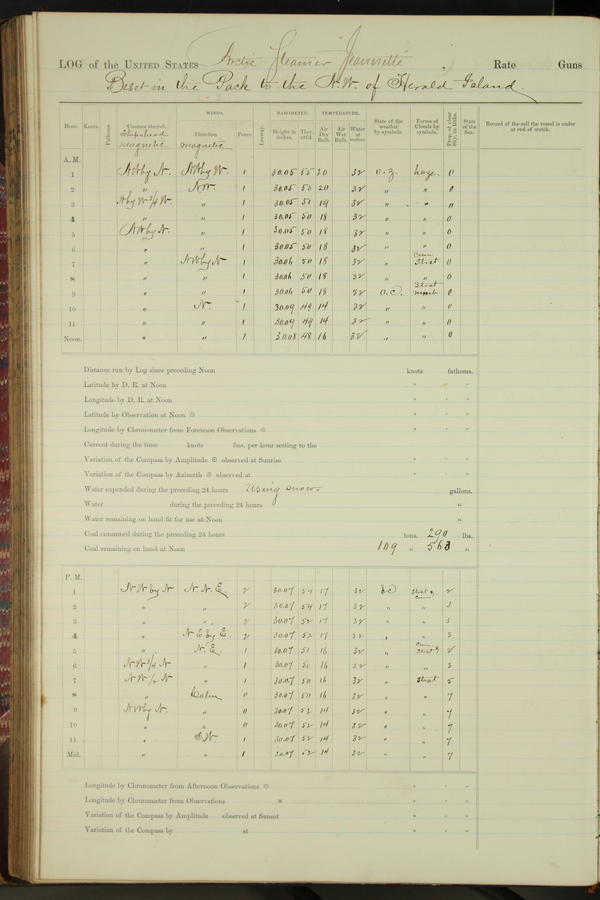 LOG of the UNITED STATES Arctic Steamer "Jeannette" Rate Guns
Beset in the Pack to the N.W. of Herald Island.
WINDS. BAROMETER. TEMPERATURE.
Hour. Knots. Fathoms. Courses steered. Direction. Force. Leeway. Height in inches. Ther. att'd. Air Dry Bulb. Air Wet Bulb. Water at surface State of the weather by symbols. Forms of Clouds by symbols. Prop. of clear Sky, in 10ths. State of the Sea. Record of the sail the vessel is under at end of watch.
Ship's head magnetic magnetic
A. M.
1 NW by N. NW by W. 1 30.05 55 20 32 o. z. haze. 0
2 " NW. 1 30.05 53 20 32 " " 0
3 " 1 30.05 51 19 32 " " 0
4 " " 1 30.05 50 18 32 " " 0
5 NW by N. " 1 30.05 50 18 32 " " 0
6 " " 1 30.05 50 18 32 " " 0
7 " NW by N 1 30.06 50 18 32 " Strat 0
8 " " 1 30.06 50 18 32 " " 0
9 " " 1 30.06 50 18 32 o. c. Strat 0
10 " N. 1 30.09 49 14 32 " " 0
11 " " 1 30.09 49 14 32 " " 0
Noon. " " 1 30.08 48 16 32 " " 0
Distance run by Log since preceding Noon knots fathoms.
Latitude by D. R. at Noon ° ' "
Longitude by D. R. at Noon ° ' "
Latitude by Observation at Noon ☉ ° ' "
Longitude by Chronometer from Forenoon Observations ☉ ° ' "
Current during the time knots fms. per hour setting to the
Variation of the Compass by Amplitude ☉ observed at Sunrise ° ' "
Variation of the Compass by Azimuth ☉ observed at ° ' "
Water expended during the preceding 24 hours Using snow gallons.
Water during the preceding 24 hours "
Water remaining on hand fit for use at Noon "
Coal consumed during the preceding 24 hours tons. 290 lbs.
Coal remaining on hand at Noon 109 " 563 "
P. M.
1 NW by N N. N. E. 2 30.07 54 17 32 bc 2
2 " " 2 30.07 54 17 32 " " 3
3 " " 2 30.07 52 17 32 " " 3
4 " N E by E. 2 30.07 52 17 32 " " 3
5 " N. E. 1 30.07 51 16 32 " 2
6 " 1 30.07 50 16 32 " " 3
7 " 1 30.07 50 16 32 " Strat 5
8 " Calm 0 30.07 50 16 32 " " 7
9 NW by N. " 0 30.07 52 14 32 " " 7
10 " " 0 30.07 52 14 32 " " 7
11 " S.W. 1 30.07 52 14 32 " " 7
Mid. " " 1 30.07 52 14 32 " " 7
Longitude by Chronometer from Afternoon Observations ☉ ° ' "
Longitude by Chronometer from Observations * ° ' "
Variation of the Compass by Amplitude observed at Sunset ° ' "
Variation of the Compass by at ° ' "